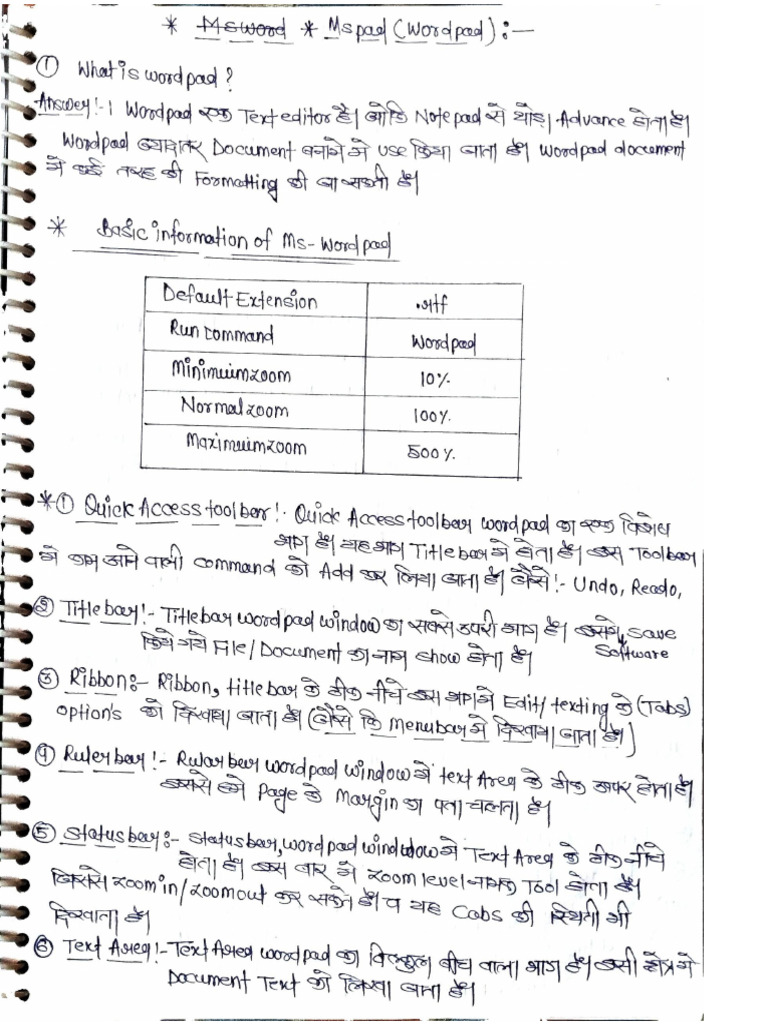 * Msword * Mspad (Wordpad):—
① What is wordpad?
Answer!-1 Wordpad एक Text editor है। जोकि Notepad से थोड़ा Advance होता है।
Wordpad ज्यादातर Document बनाने में use किया जाता है। Wordpad document
में कई तरह की Formatting की जा सकती है।
* Basic information of Ms-Wordpad
Default Extension .rtf
Run command Wordpad
Minimuim zoom 10%
Normal zoom 100%
Maximuim zoom 500%
*① Quick Access toolbar!- Quick Access toolbar wordpad का एक विशेष
भाग है। यह भाग Title bar में होता है। इस Toolbar
में काम आने वाली command को Add कर लिया जाता है। जैसे!- Undo, Reado,
② Title bar!- Title bar wordpad window का सबसे उपरी भाग है। इसमें Save
किये गये File/Document का नाम show होता है। Software
③ Ribbon:- Ribbon, title bar के ठीक नीचे इस भाग में Edit/texting के (Tabs)
option's को दिखाया जाता है। (जैसे कि Menu bar में दिखाया जाता है।)
④ Ruler bar!- Rular bar wordpad window में text Area के ठीक ऊपर होता है।
इससे हमे Page के Margin का पता चलता है।
⑤ Status bar:- Status bar, wordpad window में Text Area के ठीक नीचे
होता है। इस बार में zoom level नामक Tool होता है।
जिससे zoom in/zoom out कर सकते है। व यह Cabs की स्थिती भी
दिखाता है।
⑥ Text Area!- Text Area wordpad का बिल्कुल बीच वाला भाग है। इसी क्षेत्र में
Document Text को लिखा जाता है।